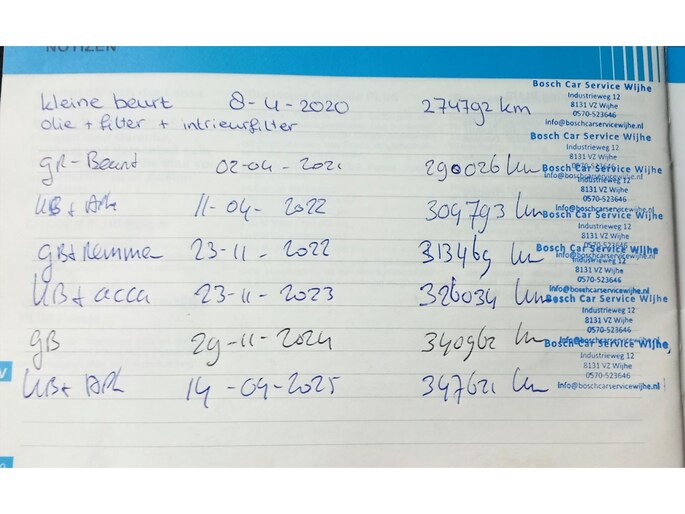 NOTIZEN
kleine beurt 8-4-2020 274792 km
olie + filter + intrieurfilter
gR-Beurt 02-04-2021 290026 km
KB + APK 11-04-2022 304793 km
gB+Remmen 23-11-2022 313469 km
KB + accu 23-11-2023 326034 km
gB 29-11-2024 340962 km
KB + APK 14-04-2025 347621 km
Bosch Car Service Wijhe
Industrieweg 12
8131 VZ Wijhe
0570-523646
info@boschcarservicewijhe.nl
Bosch Car Service Wijhe
Industrieweg 12
8131 VZ Wijhe
0570-523646
info@boschcarservicewijhe.nl
Bosch Car Service Wijhe
Industrieweg 12
8131 VZ Wijhe
0570-523646
info@boschcarservicewijhe.nl
Bosch Car Service Wijhe
Industrieweg 12
8131 VZ Wijhe
0570-523646
info@boschcarservicewijhe.nl
Bosch Car Service Wijhe
8131 VZ Wijhe
0570-523646
info@boschcarservicewijhe.nl
Bosch Car Service Wijhe
Industrieweg 12
8131 VZ Wijhe
0570-523646
info@boschcarservicewijhe.nl
Bosch Car Service Wijhe
Industrieweg 12
8131 VZ Wijhe
0570-523646
info@boschcarservicewijhe.nl
V